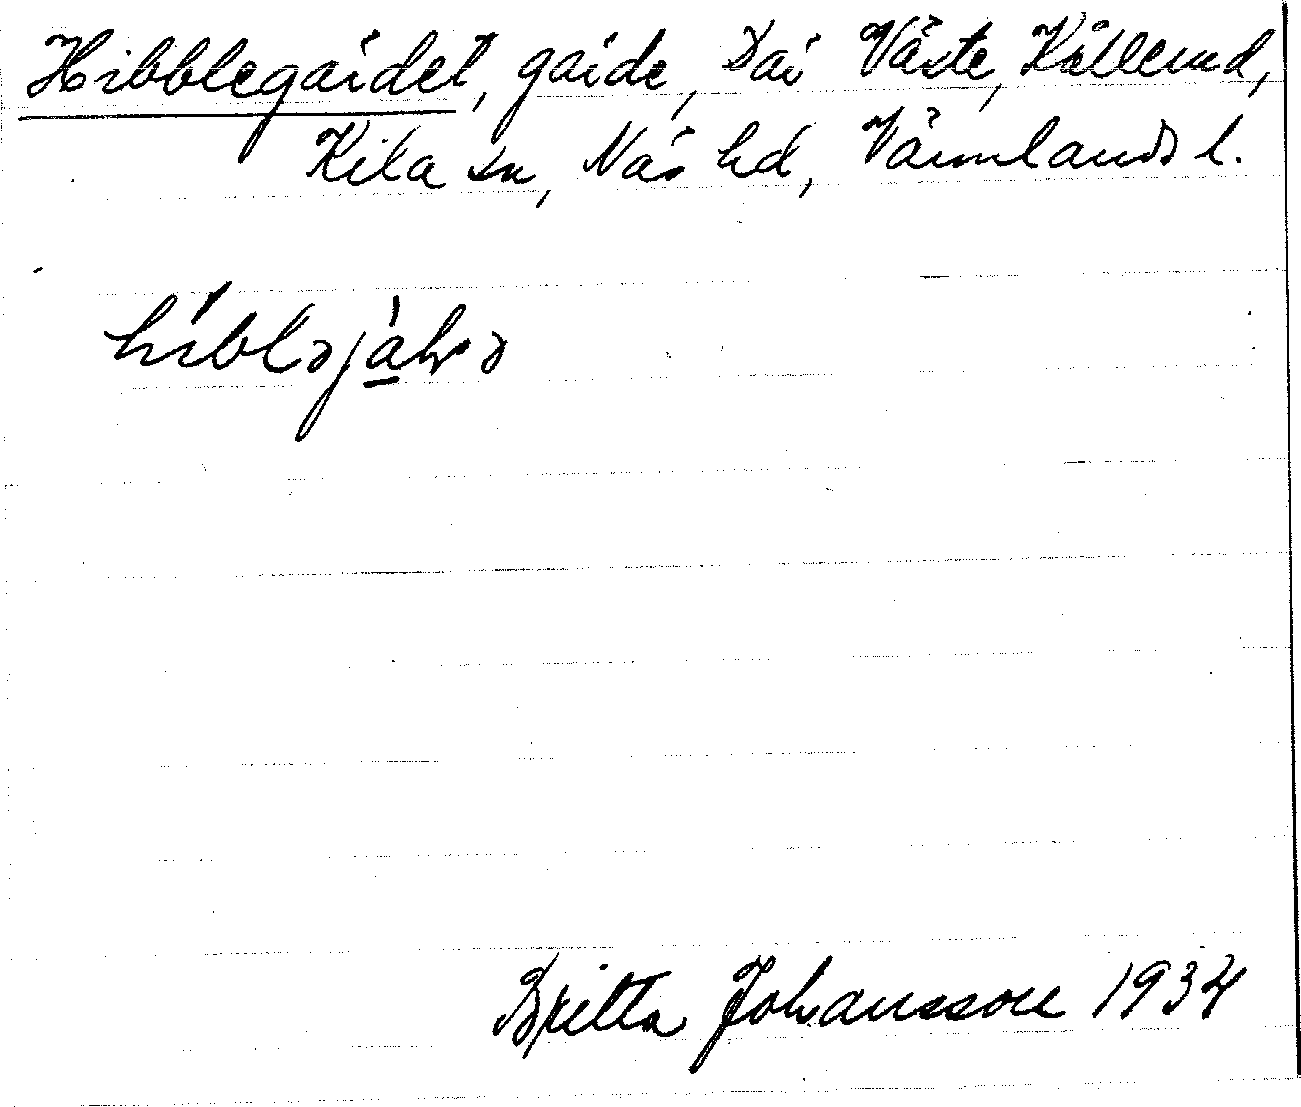 Hibblegärdet, gärde, Där Väste, Källerud,
Kila sn, Näs hd, Värmlands l.
Britta Johansson 1934